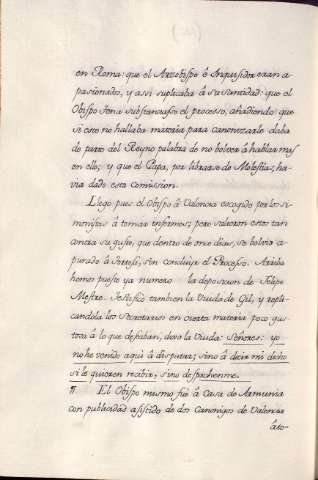 en Roma: que el Arzobispo é Inquisidor eran a-
pasionados, y assi suplicaba á su Santidad: que el
Obispo Sena substanciasse el processo, añadiendo: que
si este no hallaba materia para canonizarle daba
de parte del Reyno palabra de no bolver á hablar mas
en ello; y que el Papa, por librarse de Molestias, ha-
via dado esta Comission.
Llego pues el Obispo á Valencia escogido por los si-
monistas á tomar informes; pero salieron estos tan
contra su gusto, que dentro de once dias, se bolvio a-
purado á, sin concluir el Processo. Arriba
hemos puesto ya numero la deposicion de Felipe
Mestre. Testificó tambien la Viuda de Gil, y repli-
candola los Secretarios en cierta materia poco gus-
tosa á lo que deseaban, dixo la Viuda: Señores: yo
no he venido aqui á disputar; sino á decir mi dicho
si le quieren recibir; sino despachenme.
¶ El Obispo mismo fué á Casa de Armunia
con publicidad assistido de dos Canonigos de Valencia